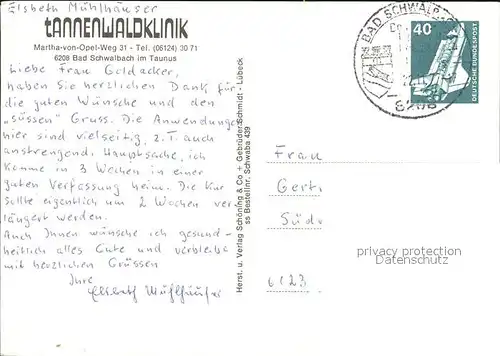 Elsbeth Mühlhäuser
TANNENWALDKLINIK
Martha-von-Opel-Weg 31 - Tel. (06124) 30 71
6208 Bad Schwalbach im Taunus
Liebe Frau Goldacker,
haben Sie herzlichen Dank für
die guten Wünsche und den
„süssen" Gruss. Die Anwendungen
hier sind vielseitig, z.T. auch
anstrengend. Hauptsache, ich
komme in 3 Wochen in einer
guten Verfassung heim. Die Kur
sollte eigentlich um 2 Wochen ver-
längert werden.
Auch Ihnen wünsche ich gesund-
heitlich alles Gute und verbleibe
mit herzlichen Grüssen
Ihre
Elsbeth Mühlhäuser
Herst. u. Verlag Schöning & Co + Gebrüder Schmidt - Lübeck
ss Bestellnr. Schwaba 439
BAD SCHWALB
6208
40
DEUTSCHE BUNDESPOST
Frau
Gert
Süd
6123
privacy protection
Datenschutz